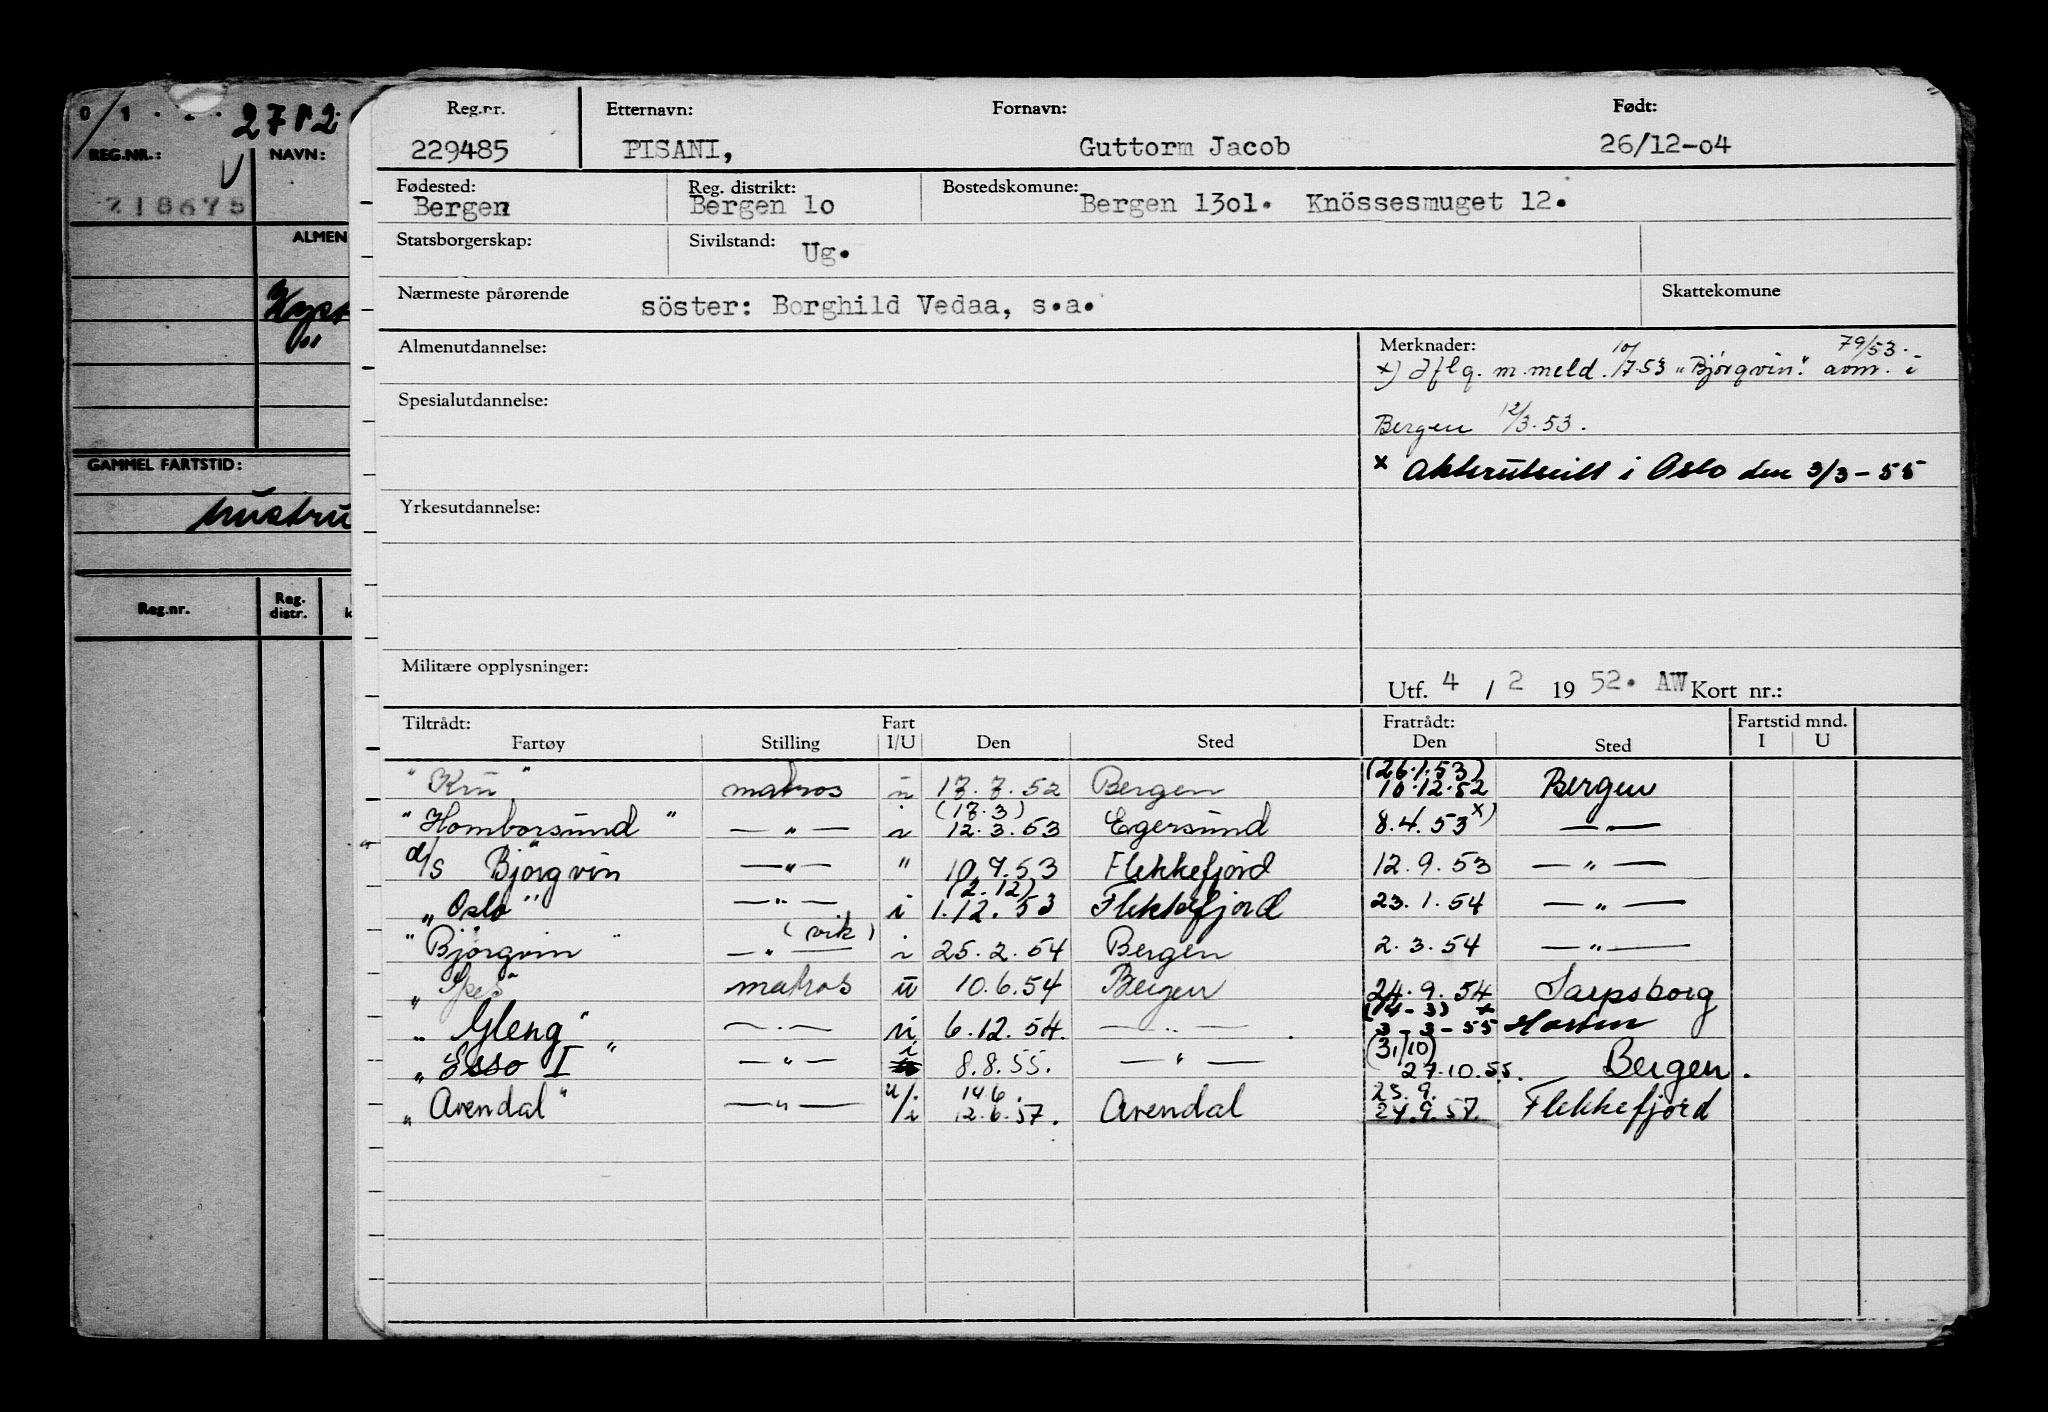 0 1 . 2 . 2712
REG.NR.: NAVN:
218675
ALMEN
GAMMEL FARTSTID:
Reg.nr. Reg. distr.
Reg.nr. Etternavn: Fornavn: Født:
229485 PISANI, Guttorm Jacob 26/12-o4
Fødested: Reg. distrikt: Bostedskomune:
Bergen Bergen lo Bergen 13ol. Knössesmuget 12.
Statsborgerskap: Sivilstand: Ug.
Nærmeste pårørende söster: Borghild Vedaa, s.a. Skattekomune
Almenutdannelse: Merknader:
x) Iflg. m. meld. 10/7.53 "Bjørgvin". avm. i 79/53.
Spesialutdannelse:
Bergen 12/3.53.
x Akterutseilt i Oslo den 3/3-55
Yrkesutdannelse:
Militære opplysninger:
Utf. 4 / 2 19 52. AW Kort nr.:
Tiltrådt: Fart Fratrådt: Fartstid mnd.
Fartøy Stilling I/U Den Sted Den Sted I U
"Kru" matros u 17.7.52 Bergen (26.1.53) 10.12.52 Bergen
"Homborsund" — " — i (17.3) 12.3.53 Egersund 8.4.53 x) — " —
d/s Bjørgvin — " — " 10.7.53 Flekkefjord 12.9.53 — " —
"Oslo" — " — i (2.12) 1.12.53 Flekkefjord 23.1.54 — " —
"Bjørgvin" — " — (vik) i 25.2.54 Bergen 2.3.54 — " —
"Spes" matros u 10.6.54 Bergen 24.9.54 Sarpsborg
"Gleng" — " — 6.12.54. — " — (14-3) x 3-3-55 Horten
"Esso I" — " — i 8.8.55. — " — (31/10) 27.10.55. Bergen.
"Arendal" — " — u/i 14.6. 12.6.57. Arendal 25.9. 24.9.57. Flekkefjord